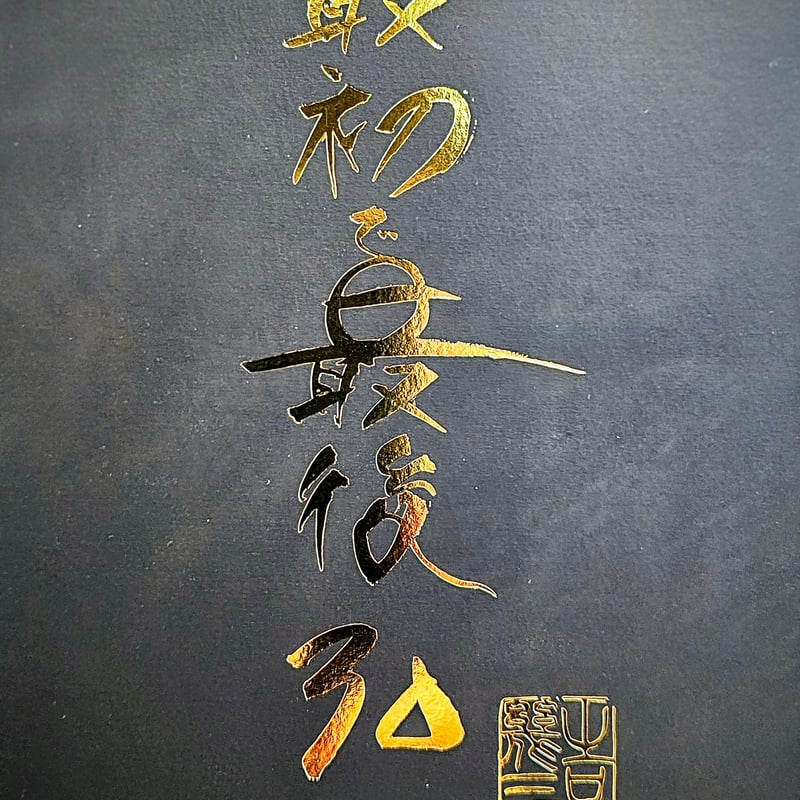 最初で最後
弘